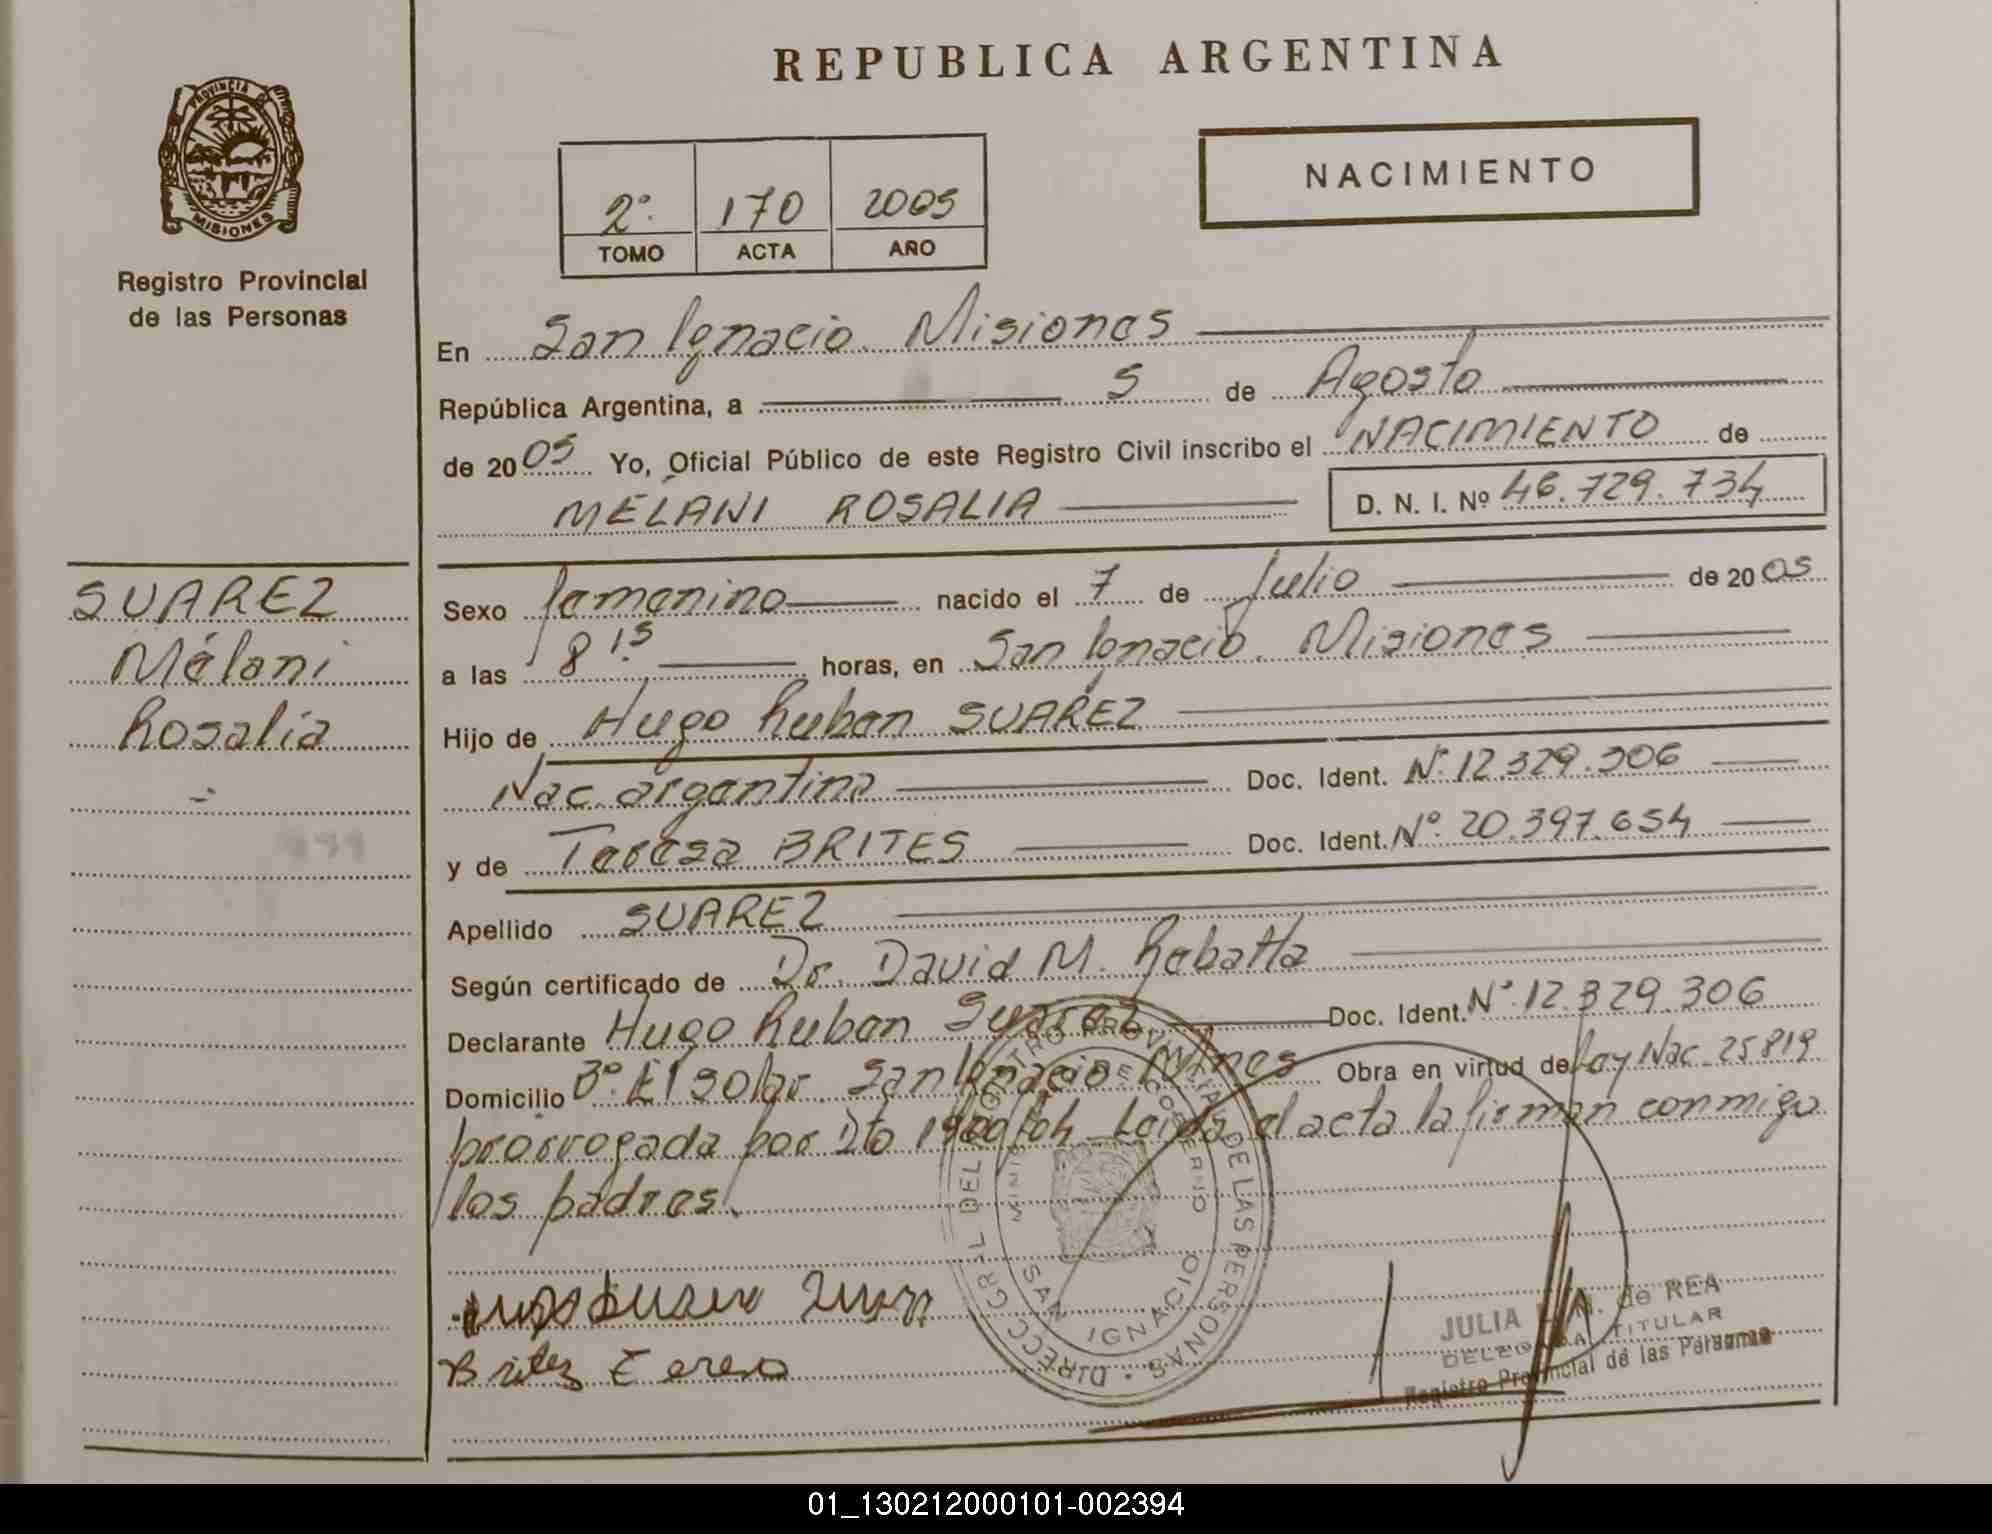 REPUBLICA ARGENTINA
PROVINCIA DE
MISIONES
Registro Provincial
de las Personas
NACIMIENTO
2º 170 2005
TOMO ACTA AÑO
En San Ignacio. Misiones
República Argentina, a 5 de Agosto
de 2005 Yo, Oficial Público de este Registro Civil inscribo el NACIMIENTO de
MÉLANI ROSALIA D. N. I. Nº 46.729.734
SUAREZ
Mélani
Rosalia
Sexo femenino nacido el 7 de Julio de 2005
a las 8 15 horas, en San Ignacio. Misiones
Hijo de Hugo Ruben SUAREZ
Nac. argentina Doc. Ident. Nº 12.329.306
y de Teresa BRITES Doc. Ident. Nº 20.397.654
Apellido SUAREZ
Según certificado de Dr. David M. Rabatta
Declarante Hugo Ruben Suarez Doc. Ident. Nº 12.329.306
Domicilio Bº El solar. San Ignacio Mnes Obra en virtud de Ley Nac. 25819
prorrogada por Dto 1900/04 Leida el acta la firman conmigo
los padres.
Brites Teresa
DIRECC. GRAL. DEL REGISTRO PROVINCIAL DE LAS PERSONAS
MINIS DE GOBIERNO
SAN IGNACIO
JULIA N. de REA
DELEGADA TITULAR
Registro Provincial de las Personas
01_130212000101-002394